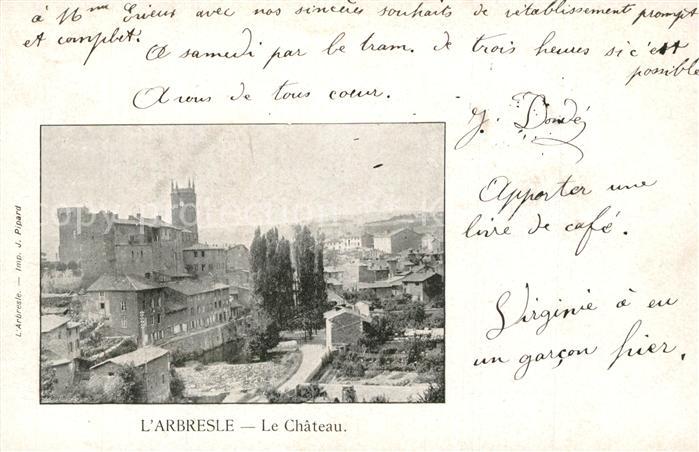 à Mme Erieux avec nos sincères souhaits de rétablissement prompt
et complet.
A samedi par le tram. de trois heures si c'est
possible
A vous de tous cœur.
J.
Apporter une
livre de café.
Virginie à eu
un garçon hier.
L'Arbresle. — Imp. J. Pipard
L'ARBRESLE — Le Château.